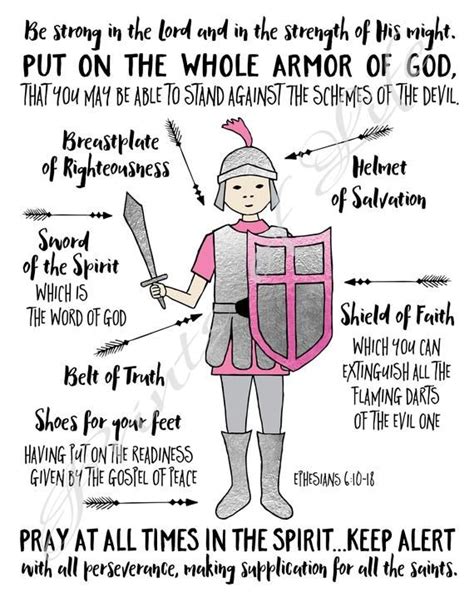 Be strong in the Lord and in the strength of His might.
PUT ON THE WHOLE ARMOR OF GOD,
THAT YOU MAY BE ABLE TO STAND AGAINST THE SCHEMES OF THE DEVIL.
Breastplate
of Righteousness
Helmet
of Salvation
Sword
of the Spirit
WHICH IS
THE WORD OF GOD
Shield of Faith
WHICH YOU CAN
EXTINGUISH ALL THE
FLAMING DARTS
OF THE EVIL ONE
Belt of Truth
Shoes for your feet
HAVING PUT ON THE READINESS
GIVEN BY THE GOSPEL OF PEACE
EPHESIANS 6:10-18
PRAY AT ALL TIMES IN THE SPIRIT...KEEP ALERT
with all perseverance, making supplication for all the saints.